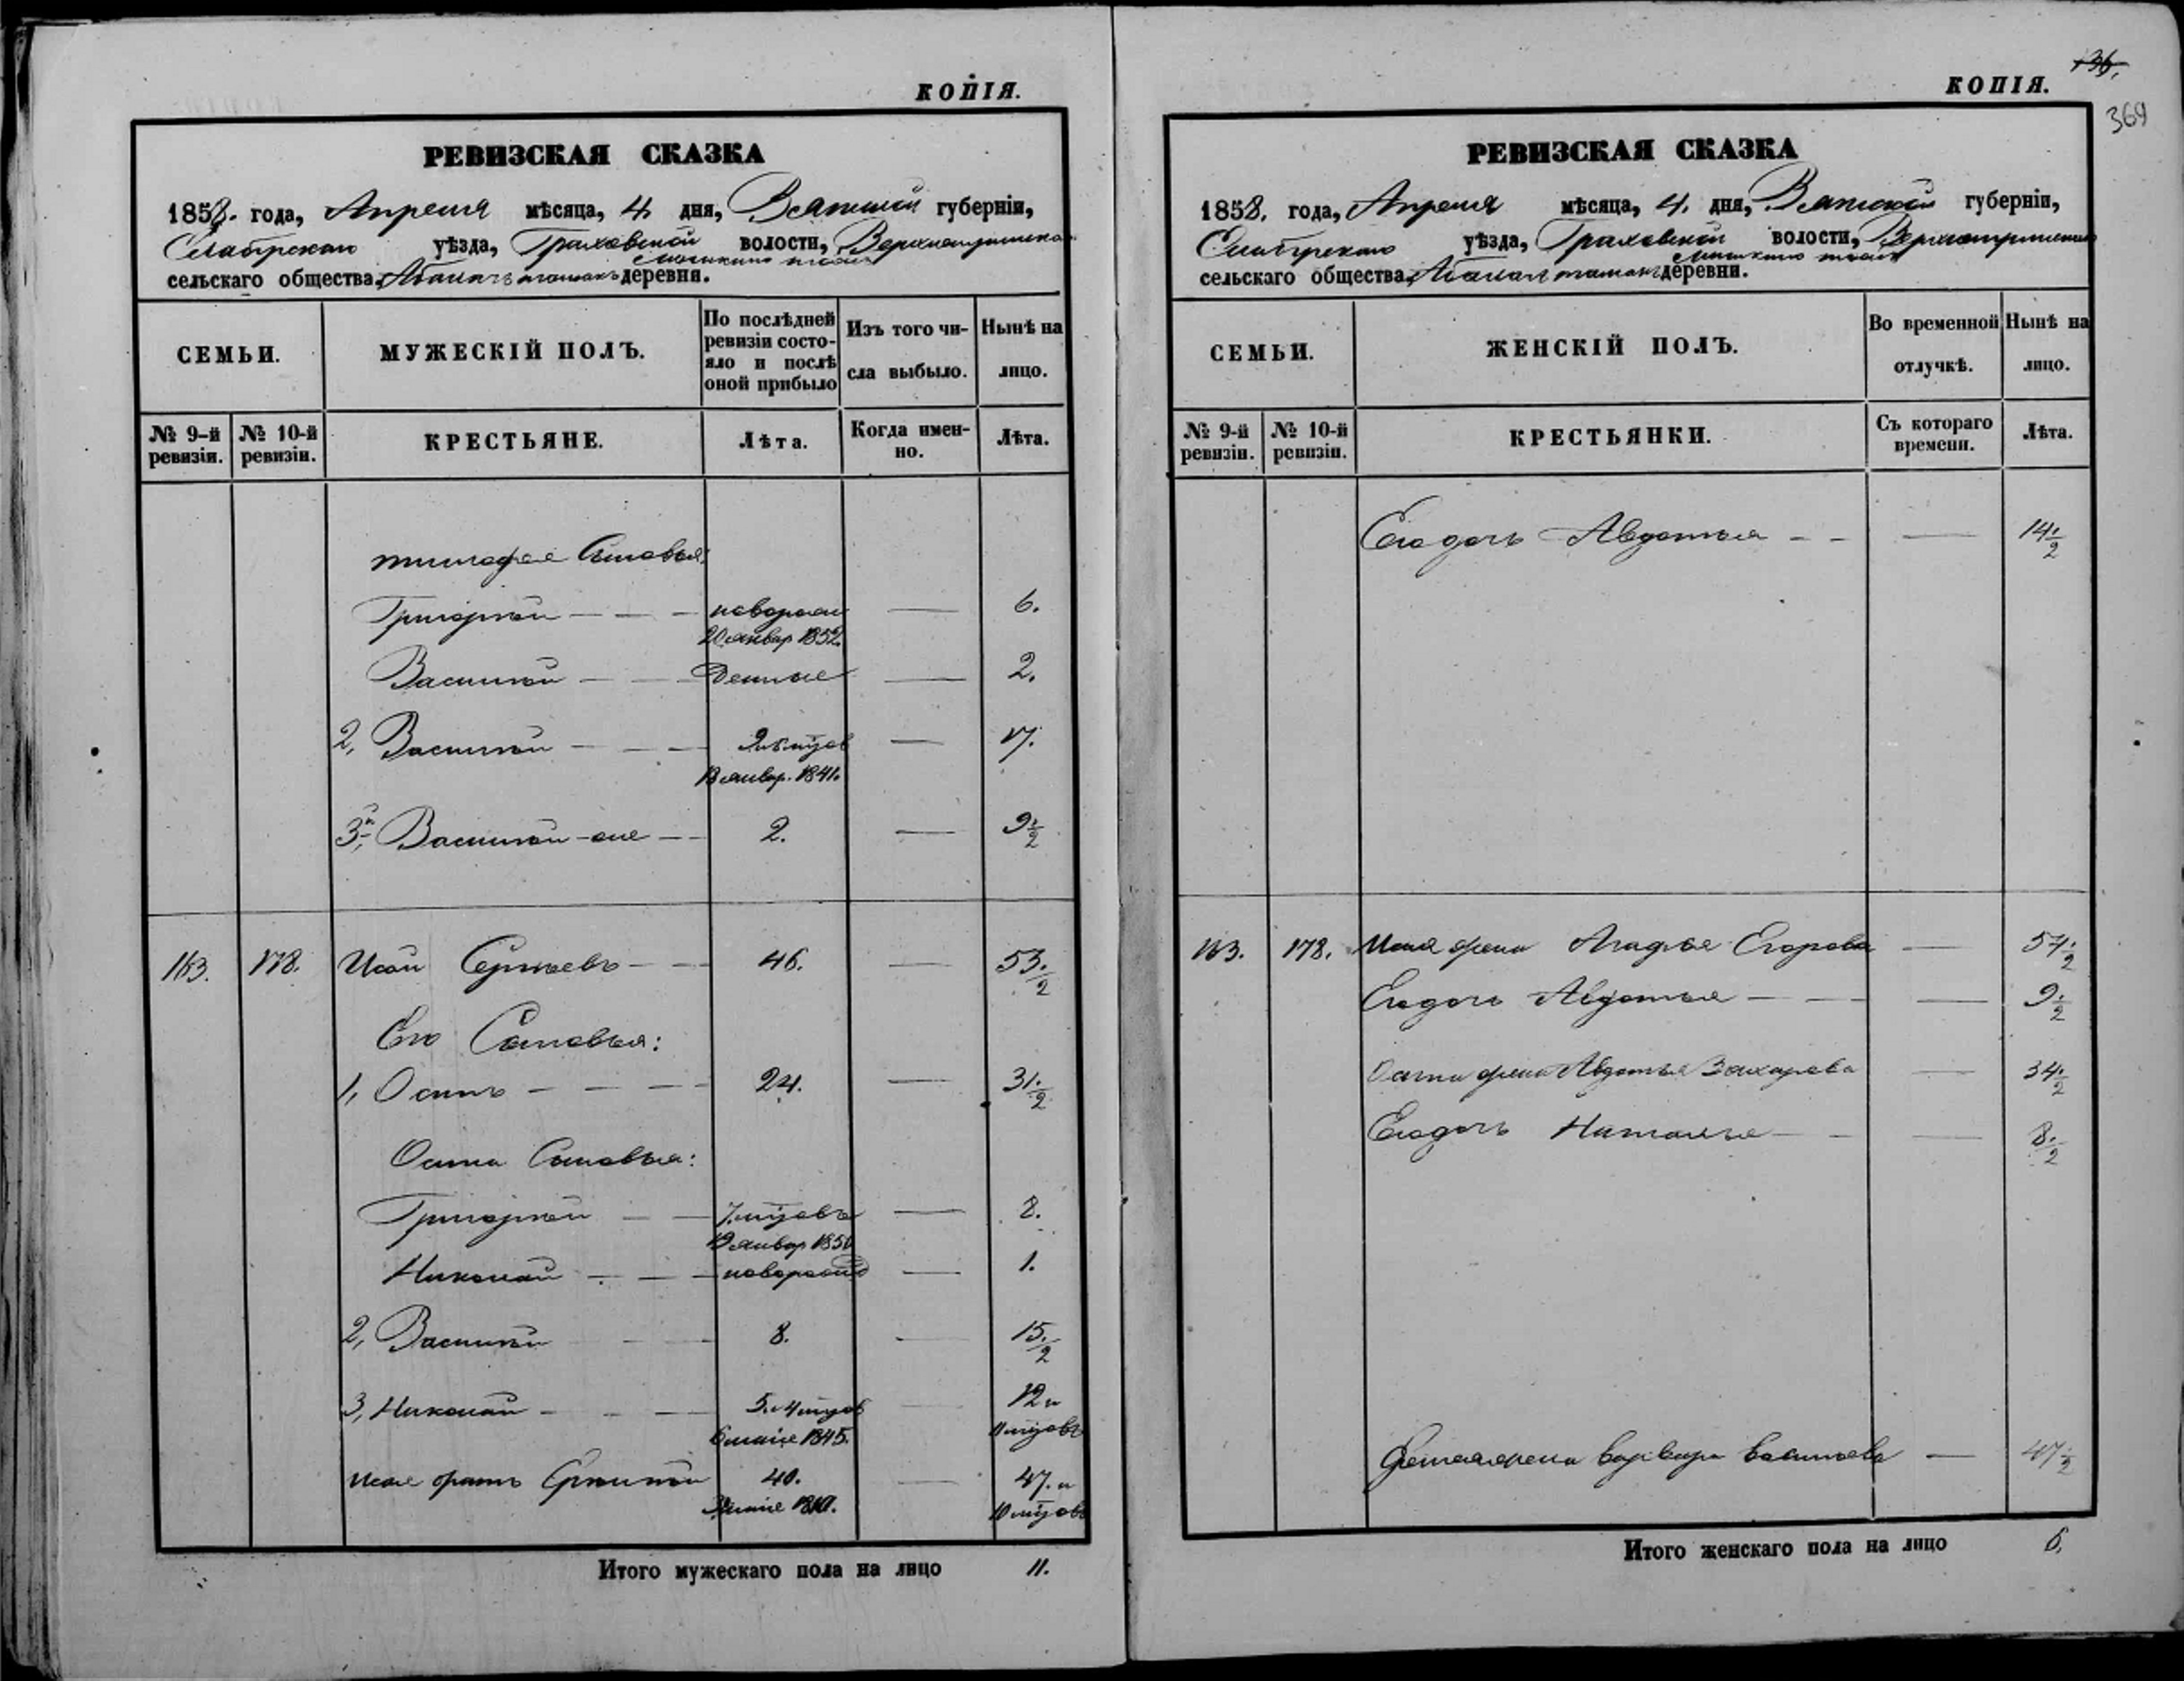 КОПІЯ.
РЕВИЗСКАЯ СКАЗКА
1858. года, Апреля мѣсяца, 4 дня, Вятской губерніи,
Елабугскаго уѣзда, Граховской волости,
сельскаго общества, деревни.
СЕМЬИ.
МУЖЕСКІЙ ПОЛЪ.
По послѣдней ревизіи состояло и послѣ оной прибыло
Изъ того числа выбыло.
Нынѣ на лицо.
№ 9-й ревизіи.
№ 10-й ревизіи.
КРЕСТЬЯНЕ.
Лѣта.
Когда именно.
Лѣта.
Тимофея Сыновья:
Григорій — — — новорожд — 6.
20 январ 1852.
Василій — — — — 2.
2, Василій — — — — 17.
13 январ. 1841.
3й, Василій-же — — 2. — 9 1/2
163. 178. Исай Сергѣевъ — — 46. — 53. 1/2
Его Сыновья:
1, Осипъ — — — — 24. — 31. 1/2
Осипа Сыновья:
Григорій — — 7 мѣсцовъ — 8.
19 январ 1850
Николай — — — новорожд — 1.
2, Василій — — 8. — 15. 1/2
3, Николай — — — 5. и 4 мѣсцов — 12 и
6 маія 1845. 11 мѣсцовъ
Исая братъ 40. — 47. и
10 мѣсцовъ
Итого мужескаго пола на лицо 11.
КОПІЯ.
136.
369
РЕВИЗСКАЯ СКАЗКА
1858. года, Апреля мѣсяца, 4. дня, Вятской губерніи,
Елабугскаго уѣзда, Граховской волости,
сельскаго общества, деревни.
СЕМЬИ.
ЖЕНСКІЙ ПОЛЪ.
Во временной отлучкѣ.
Нынѣ на лицо.
№ 9-й ревизіи.
№ 10-й ревизіи.
КРЕСТЬЯНКИ.
Съ котораго времени.
Лѣта.
Его дочь Авдотья — — — 14 1/2
163. 178. Исая жена Агафья Егорова — 54. 1/2
Его дочь Авдотья — — — 9. 1/2
Осипа жена Авдотья Захарова — 34. 1/2
Его дочь Наталья — — — 8. 1/2
жена Варвара Васильева — 47 1/2
Итого женскаго пола на лицо 6.